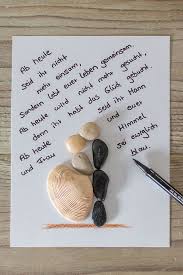 Ab heute
seid ihr nicht
mehr einsam,
lebt euer Leben gemeinsam.
Sondern
Ab heute wird nicht mehr gesucht,
denn ihr habt das Glück gebucht.
Ab heute seid ihr Mann
und Frau und euer
Himmel
sei ewiglich
blau.